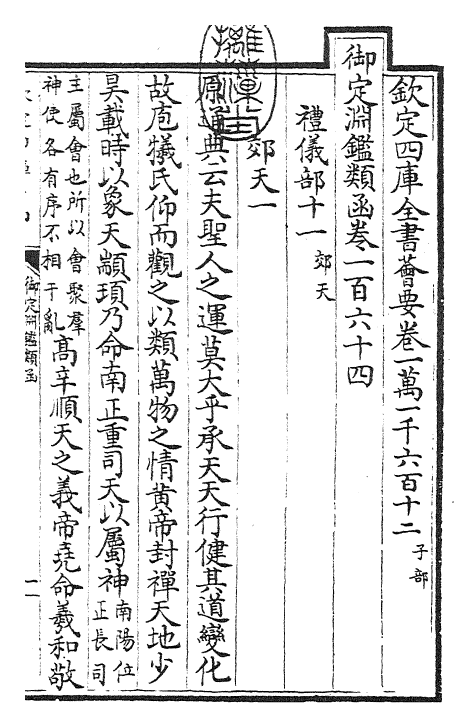 欽定四庫全書薈要卷一萬一千六百十二 子部
御定淵鑑類函卷一百六十四
禮儀部十一 郊天
郊天一
原通典云夫聖人之運莫大乎承天天行健其道變化
故庖犧氏仰而觀之以類萬物之情黄帝封禪天地少
昊載時以象天顓頊乃命南正重司天以屬神 南陽位
正長司
主屬會也所以會聚羣
神使各有序不相干亂
高辛順天之義帝堯命羲和敬
御定淵鑑類函